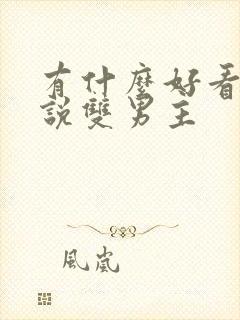 有什麼好看
說雙男主
風嵐